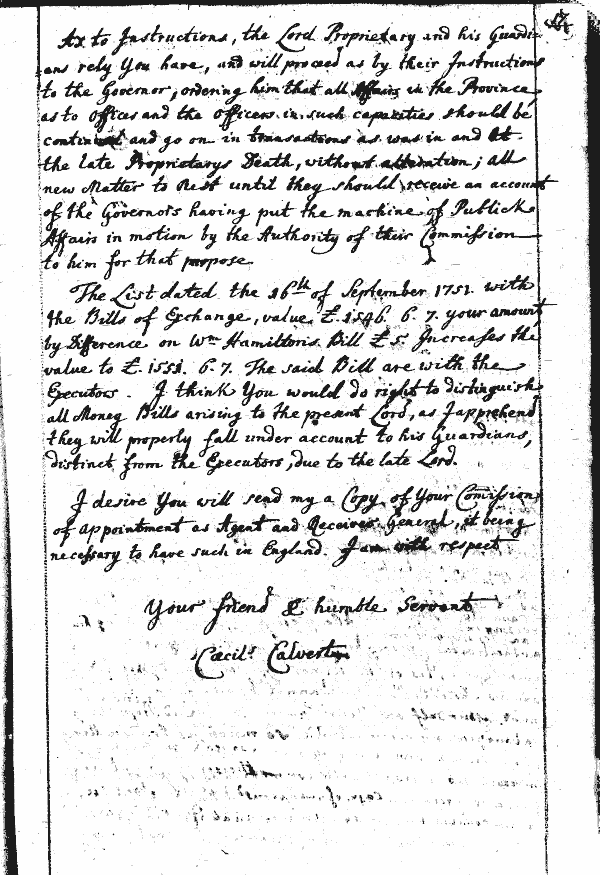 As to Instructions, the Lord Proprietary and his Guardi-
ans rely You have, and will proceed as by their Instructions
to the Governor, ordering him that all Affairs in the Province
as to Offices and the Officers in such capacities should be
continued and go on in transactions as was in and at
the late Proprietarys Death, without alteration; all
new Matter to Rest until they should receive an account
of the Governors having put the machine of Publick
Affairs in motion by the Authority of their Commission
to him for that propose
The List dated the 26th of September 1751. with
the Bills of Exchange, value £.1546. 6. 7. your amount
by Difference on Wm Hamiltons Bill £5. Increases the
value to £.1551. 6. 7. The said Bill are with the
Executors. I think You would do right to distinguish
all Money Bills arising to the present Lord, as I apprehend
they will properly fall under account to his Guardians,
distinct from the Executors, due to the late Lord.
I desire You will send my a Copy of Your Comission
of appointment as Agent and Receiver General, it being
necessary to have such in England. I am with respect
Your friend & humble Servant
Cœcils. Calvert